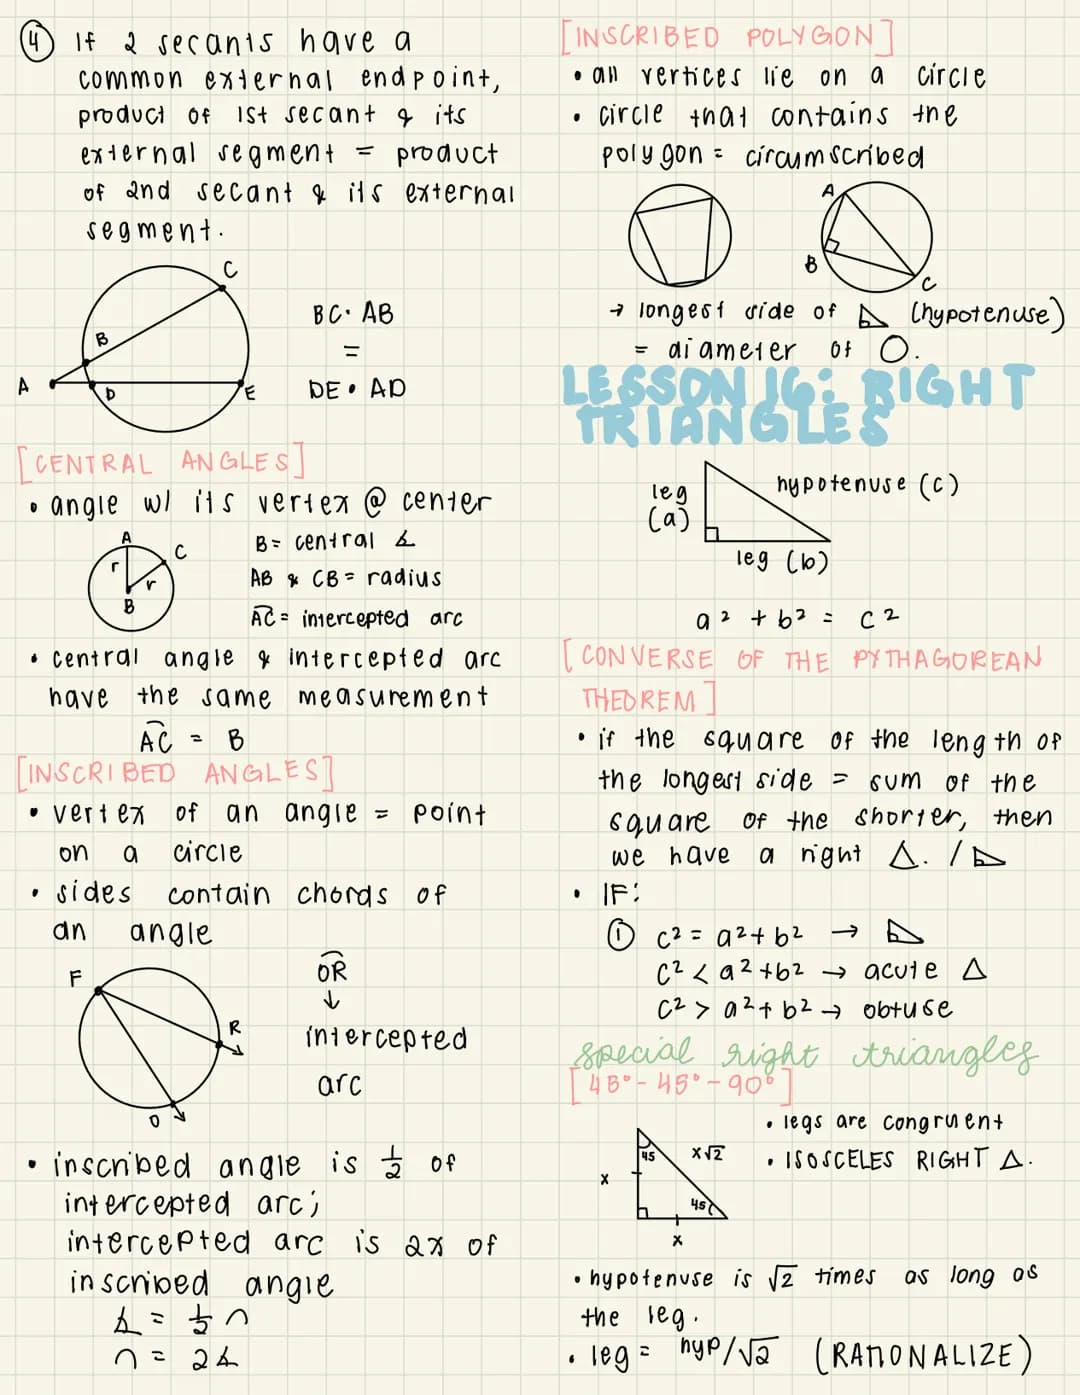 ④ If 2 secants have a
common external endpoint,
product of 1st secant & its
external segment = product
of 2nd secant & its external
segment.
C
B
A
D
E
BC · AB
=
DE · AD
[CENTRAL ANGLES]
• angle w/ its vertex @ center
A
C
r
r
B
B = central ∡
AB & CB = radius
A͡C = intercepted arc
• central angle & intercepted arc
have the same measurement
A͡C = B
[INSCRIBED ANGLES]
• vertex of an angle = point
on a circle
• sides contain chords of
an angle
F
R
O
O͡R
↓
intercepted
arc
• inscribed angle is ½ of
intercepted arc;
intercepted arc is 2x of
inscribed angle
∡ = ½ ∩
∩ = 2∡
[INSCRIBED POLYGON]
• all vertices lie on a circle
• circle that contains the
polygon = circumscribed
A
B
C
→ longest side of ◺ (hypotenuse)
= diameter of O.
LESSON 16: RIGHT
TRIANGLES
leg
(a)
hypotenuse (c)
leg (b)
a² + b² = c²
[CONVERSE OF THE PYTHAGOREAN
THEOREM]
• if the square of the length of
the longest side = sum of the
square of the shorter, then
we have a right △. / ◺
• IF:
① c² = a² + b² → ◺
c² < a² + b² → acute △
c² > a² + b² → obtuse
special right triangles
[45° - 45° - 90°]
45
x√2
x
45
x
• legs are congruent
• ISOSCELES RIGHT △.
• hypotenuse is √2 times as long as
the leg.
• leg = hyp/√2 (RATIONALIZE)